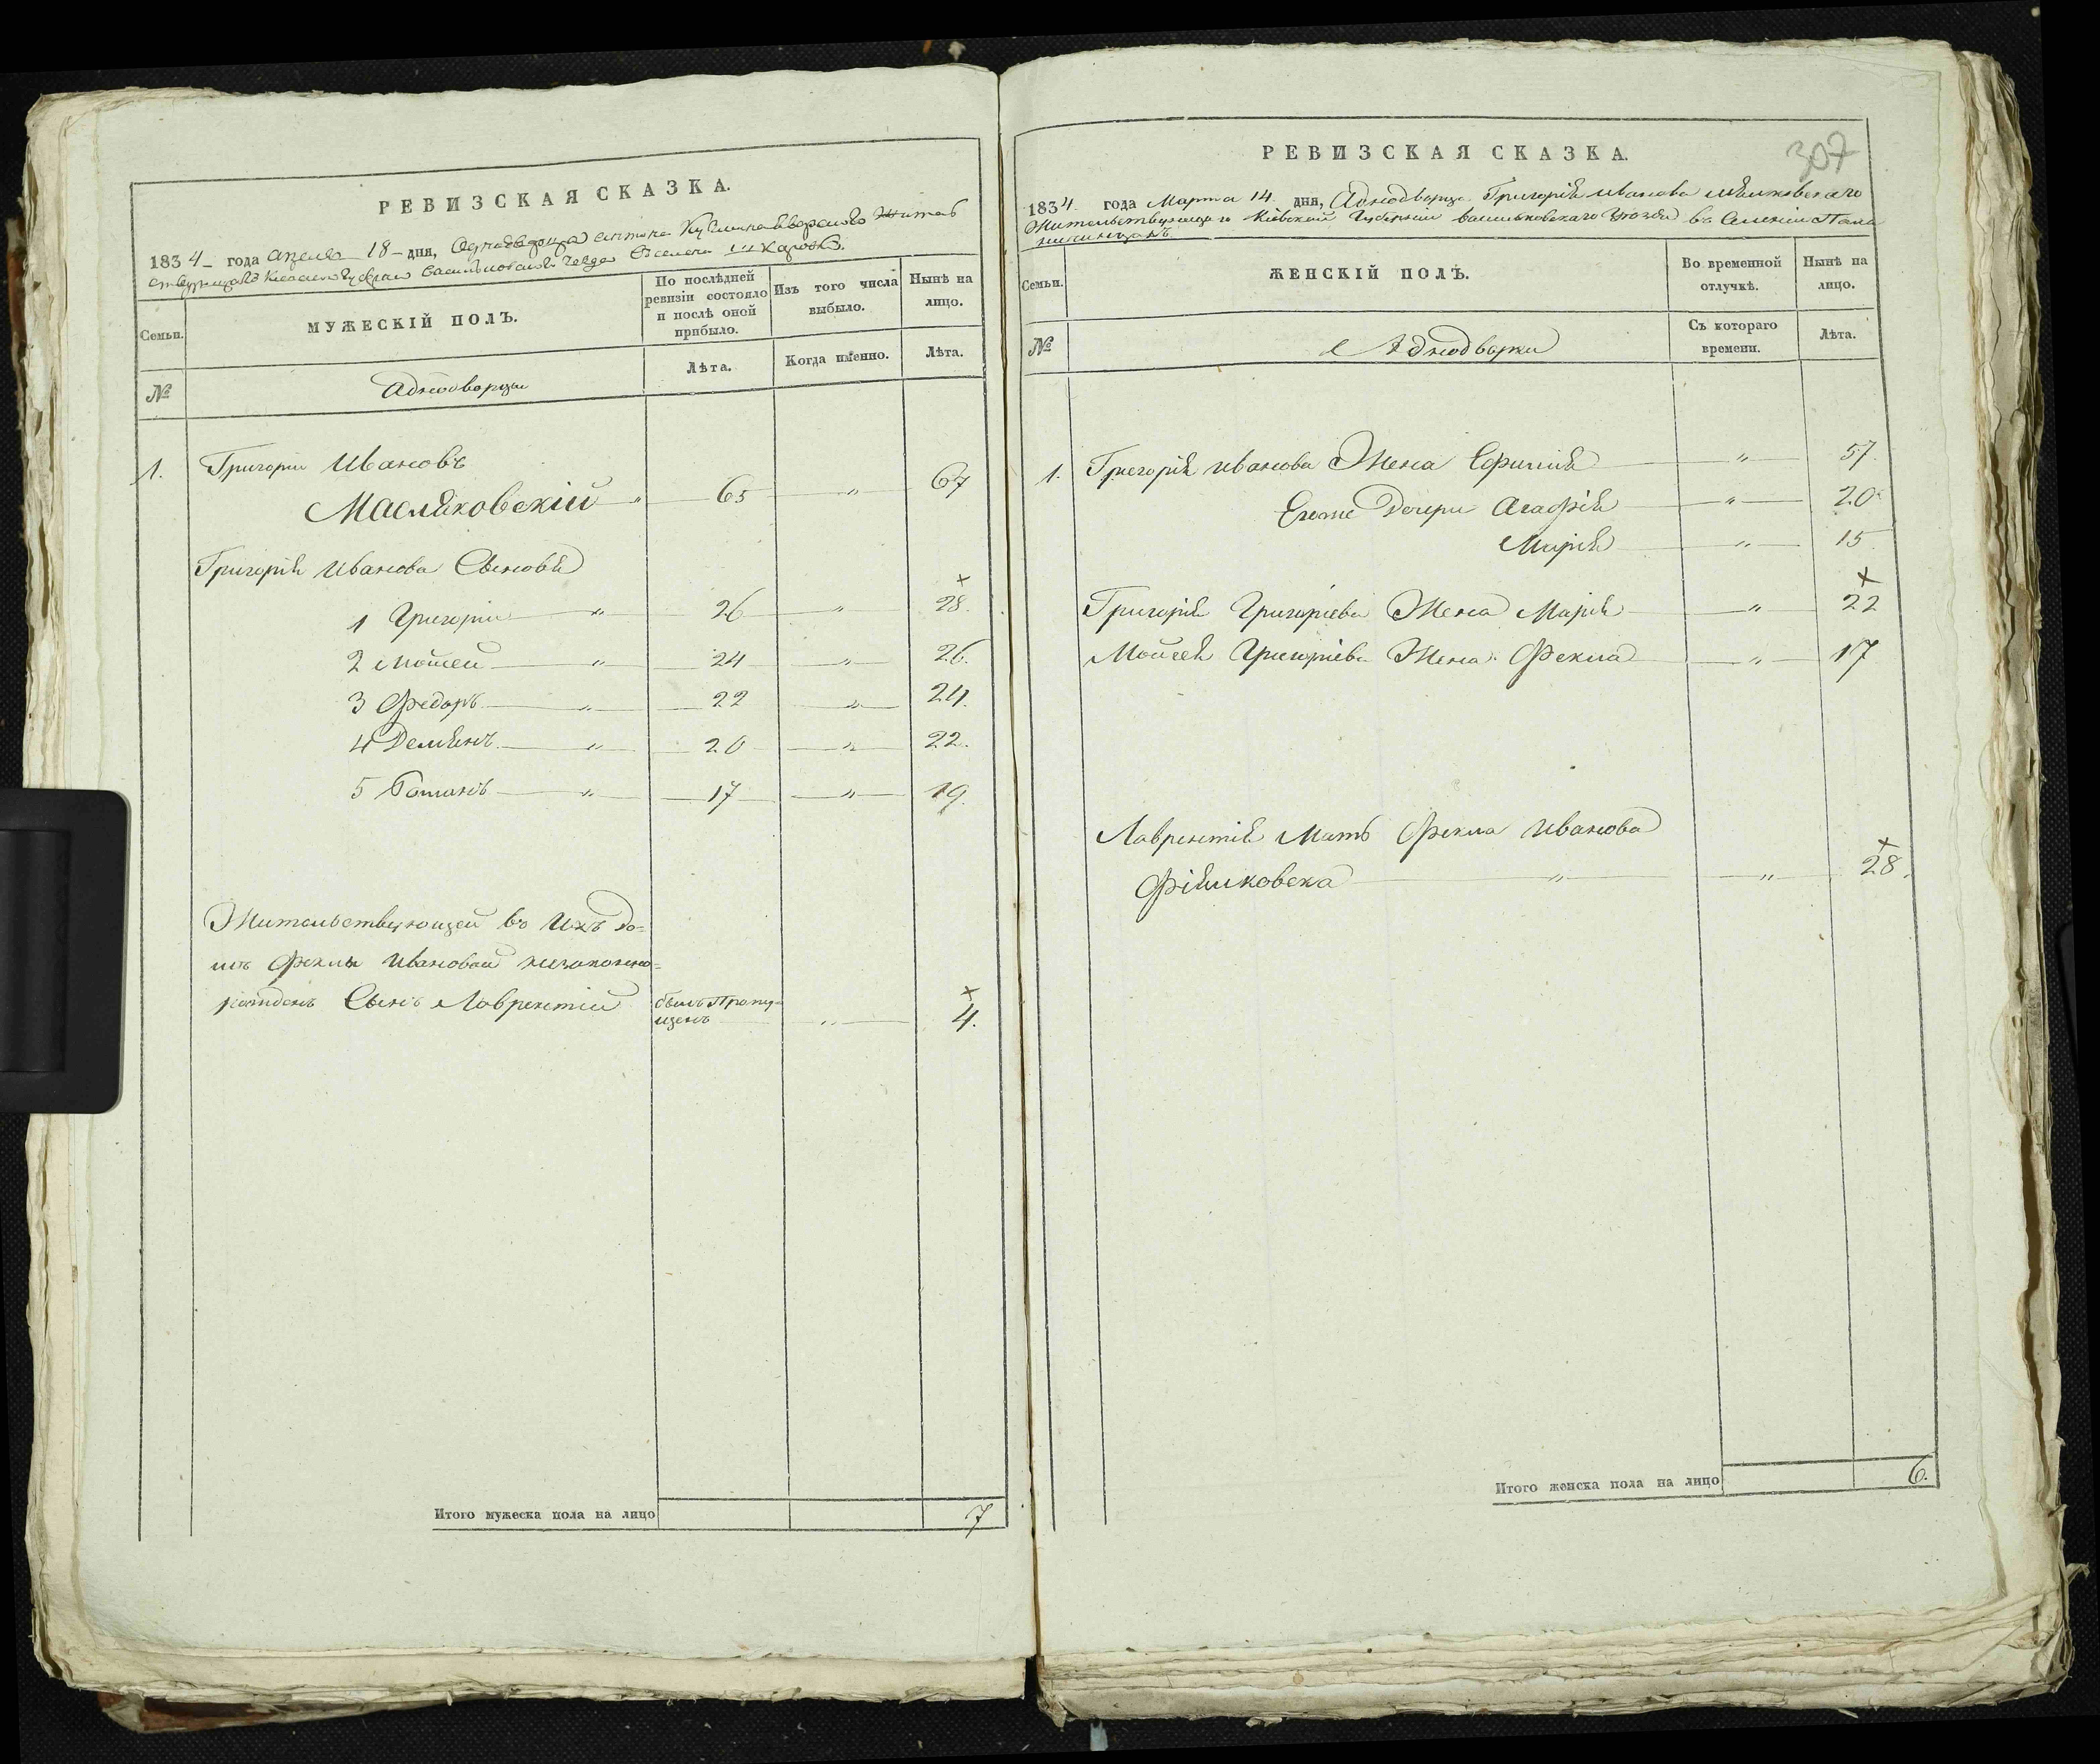 РЕВИЗСКАЯ СКАЗКА.
1834 года апреля 18 дня, Антона
Киевской Губернии Васильковского уезда
Семьи.
МУЖЕСКІЙ ПОЛЪ.
По послѣдней ревизіи состояло и послѣ оной прибыло.
Изъ того числа выбыло.
Нынѣ на лицо.
№
Аднодворцы
Лѣта.
Когда именно.
Лѣта.
1. Григорий Ивановъ
Маслѣковскій " 65 " 67
Григорія Иванова Сыновя
1 Григорий " 26 " 28.
2 Мойсей " 24 " 26.
3 Федоръ " 22 " 24.
4 Демянъ " 20 " 22.
5 Романъ " 17 " 19.
Жительствующей въ Ихъ до=
мѣ Феклы Ивановой незаконно=
рожденъ Сынъ Лаврентій былъ Пропу=
щенъ " 4.
Итого мужеска пола на лицо 7
307
РЕВИЗСКАЯ СКАЗКА.
1834 года Марта 14 дня, Аднодворца Григорія Иванова
Жительствующаго Кіевской Губерніи Васильковскаго Уѣзда въ Селеніи
Семьи.
ЖЕНСКІЙ ПОЛЪ.
Во временной отлучкѣ.
Нынѣ на лицо.
№
Аднодворки
Съ котораго времени.
Лѣта.
1. Григорія Иванова Жена Ефимія " 57.
Егоже Дочери Агафія " 20
Марія " 15
Григорія Григоріева Жена Марія " 22
Мойсея Григоріева Жена Фекла " 17
Лаврентія Мать Фекла Иванова
" " 28.
Итого женска пола на лицо 6.